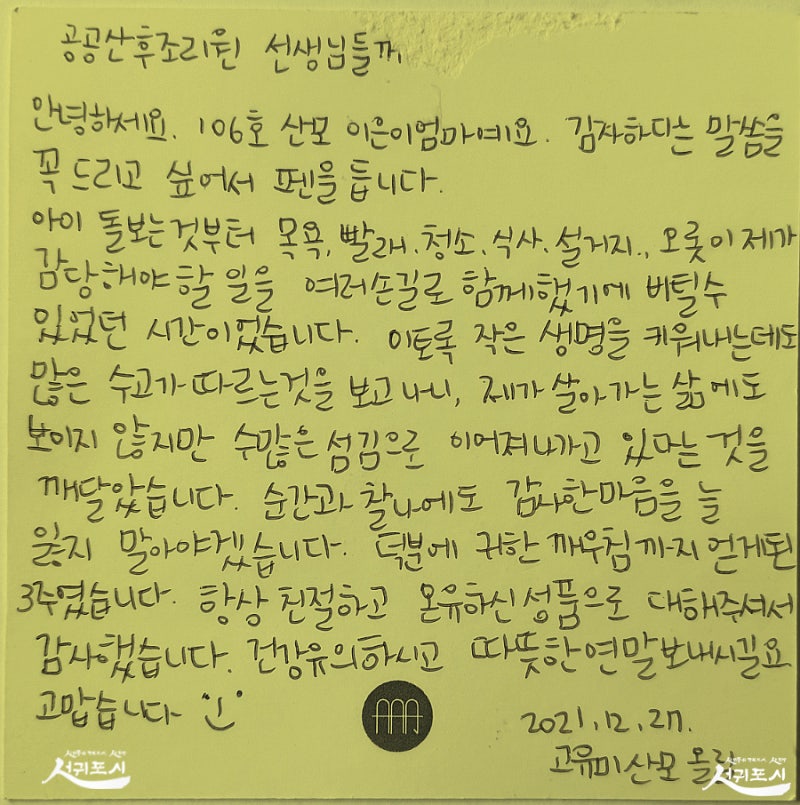 공공산후조리원 선생님들께
안녕하세요. 106호 산모 이은이엄마예요. 감사하다는 말씀을
꼭 드리고 싶어서 펜을 듭니다.
아이 돌보는것부터 목욕, 빨래. 청소. 식사. 설거지., 오롯이 제가
감당해야 할 일을 여러손길로 함께했기에 버틸수
있었던 시간이었습니다. 이토록 작은 생명을 키워내는데도
많은 수고가 따르는것을 보고나니, 제가 살아가는 삶에도
보이지 않지만 수많은 섬김으로 이어져나가고 있다는 것을
깨달았습니다. 순간과 찰나에도 감사한마음을 늘
잃지 말아야겠습니다. 덕분에 귀한 깨우침까지 얻게된
3주였습니다. 항상 친절하고 온유하신 성품으로 대해주셔서
감사했습니다. 건강유의하시고 따뜻한 연말보내시길요
고맙습니다
2021.12.27.
고유미산모 올림
서귀포시
서귀포시